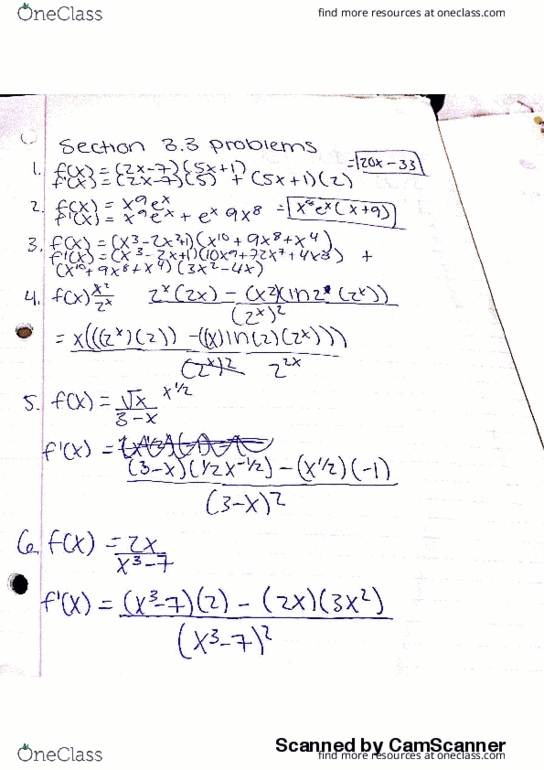 OneClass
find more resources at oneclass.com
Section 3.3 problems
1. f(x) = (2x-7)(5x+1) = 20x - 33
f'(x) = (2x-7)(5) + (5x+1)(2)
2. f(x) = x⁹eˣ
f'(x) = x⁹eˣ + eˣ 9x⁸ = x⁸eˣ(x+9)
3. f(x) = (x³-2x²+1)(x¹⁰ + 9x⁸ + x⁴)
f'(x) = (x³-2x+1)(10x⁹+72x⁷+4x³) +
(x¹⁰+9x⁸+x⁴)(3x²-4x)
4. f(x) x²/2ˣ 2ˣ(2x) - (x²)(ln2 (2ˣ))
(2ˣ)²
= x(((2ˣ)(2)) - ((x)ln(2)(2ˣ)))
(2ˣ)² 2²ˣ
5. f(x) = √x x^1/2
3-x
f'(x) =
(3-x)(1/2x^-1/2) - (x^1/2)(-1)
(3-x)²
6. f(x) = 2x
x³-7
f'(x) = (x³-7)(2) - (2x)(3x²)
(x³-7)²
Scanned by CamScanner
OneClass
find more resources at oneclass.com